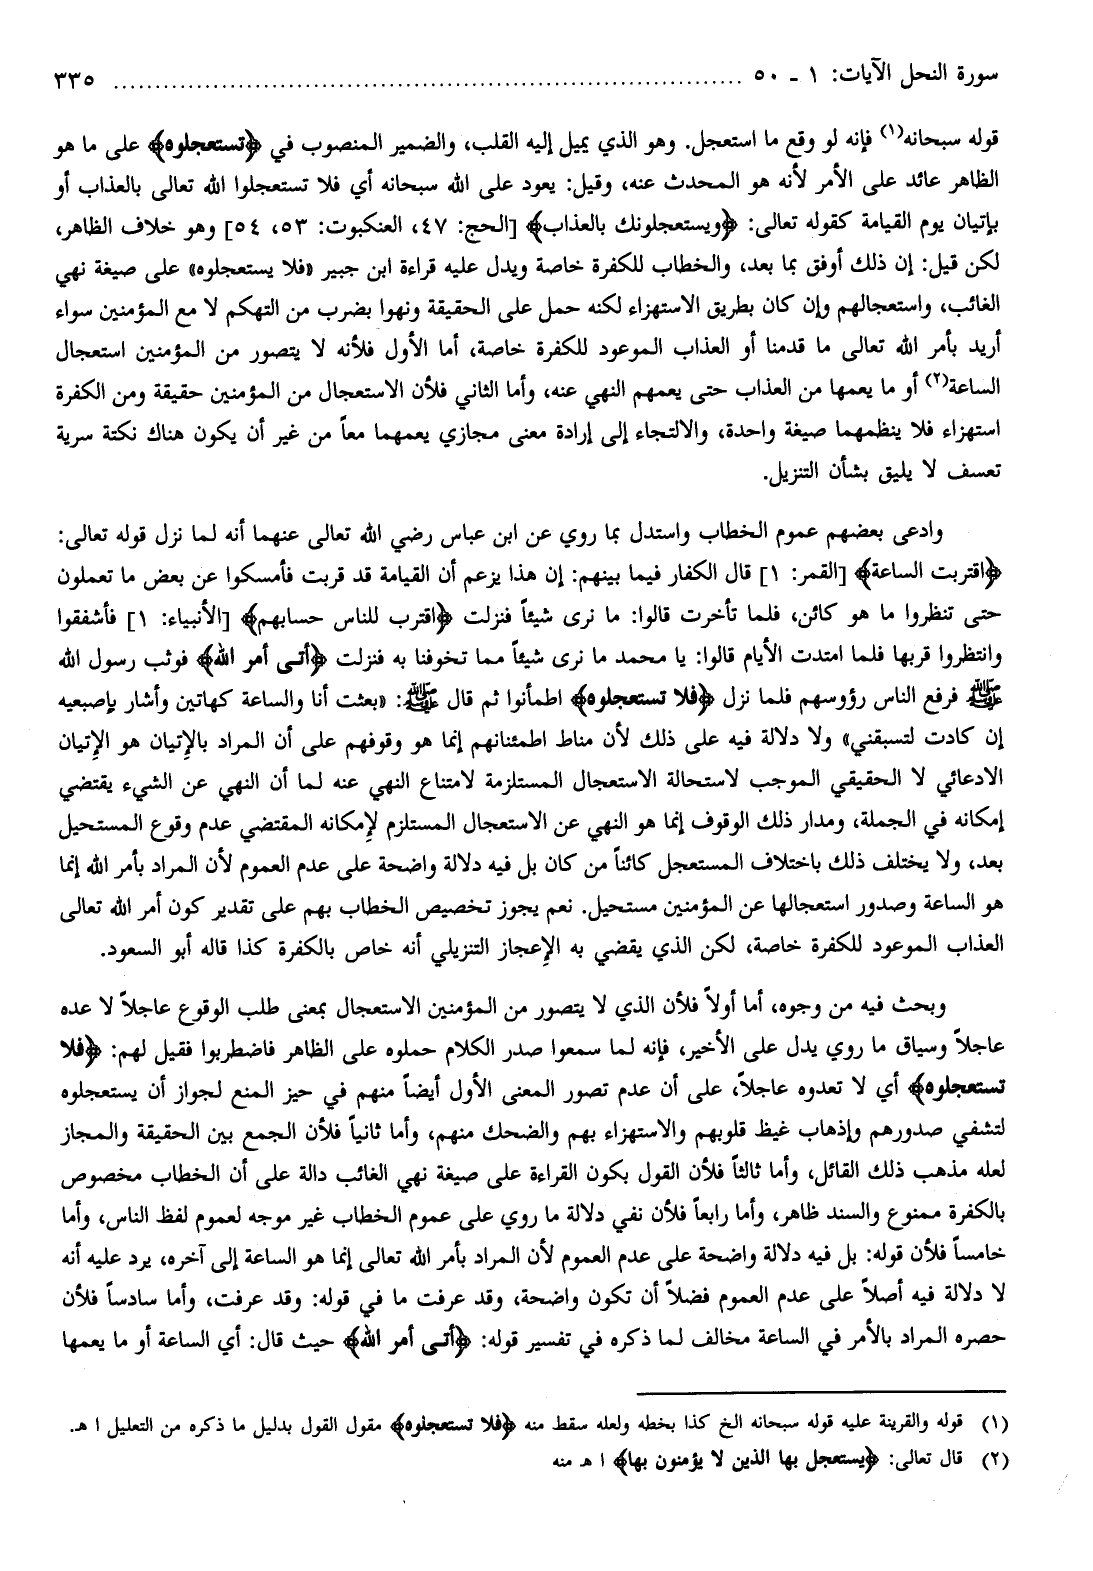 سورة النحل الآيات: ١ ـ ٥٠ ........................................................................ ٣٣٥
قوله سبحانه(١) فإنه لو وقع ما استعجل. وهو الذي يميل إليه القلب، والضمير المنصوب في ﴿تستعجلوه﴾ على ما هو
الظاهر عائد على الأمر لأنه هو المحدث عنه، وقيل: يعود على الله سبحانه أي فلا تستعجلوا الله تعالى بالعذاب أو
بإتيان يوم القيامة كقوله تعالى: ﴿ويستعجلونك بالعذاب﴾ [الحج: ٤٧، العنكبوت: ٥٣، ٥٤] وهو خلاف الظاهر،
لكن قيل: إن ذلك أوفق بما بعد، والخطاب للكفرة خاصة ويدل عليه قراءة ابن جبير «فلا يستعجلوه» على صيغة نهي
الغائب، واستعجالهم وإن كان بطريق الاستهزاء لكنه حمل على الحقيقة ونهوا بضرب من التهكم لا مع المؤمنين سواء
أريد بأمر الله تعالى ما قدمنا أو العذاب الموعود للكفرة خاصة، أما الأول فلأنه لا يتصور من المؤمنين استعجال
الساعة(٢) أو ما يعمها من العذاب حتى يعمهم النهي عنه، وأما الثاني فلأن الاستعجال من المؤمنين حقيقة ومن الكفرة
استهزاء فلا ينظمهما صيغة واحدة، والالتجاء إلى إرادة معنى مجازي يعمهما معاً من غير أن يكون هناك نكتة سرية
تعسف لا يليق بشأن التنزيل.
وادعى بعضهم عموم الخطاب واستدل بما روي عن ابن عباس رضي الله تعالى عنهما أنه لما نزل قوله تعالى:
﴿اقتربت الساعة﴾ [القمر: ١] قال الكفار فيما بينهم: إن هذا يزعم أن القيامة قد قربت فأمسكوا عن بعض ما تعملون
حتى تنظروا ما هو كائن، فلما تأخرت قالوا: ما نرى شيئاً فنزلت ﴿اقترب للناس حسابهم﴾ [الأنبياء: ١] فأشفقوا
وانتظروا قربها فلما امتدت الأيام قالوا: يا محمد ما نرى شيئاً مما تخوفنا به فنزلت ﴿أتى أمر الله﴾ فوثب رسول الله
ﷺ فرفع الناس رؤوسهم فلما نزل ﴿فلا تستعجلوه﴾ اطمأنوا ثم قال ﷺ: «بعثت أنا والساعة كهاتين وأشار بإصبعيه
إن كادت لتسبقني» ولا دلالة فيه على ذلك لأن مناط اطمئنانهم إنما هو وقوفهم على أن المراد بالإتيان هو الإتيان
الادعائي لا الحقيقي الموجب لاستحالة الاستعجال المستلزمة لامتناع النهي عنه لما أن النهي عن الشيء يقتضي
إمكانه في الجملة، ومدار ذلك الوقوف إنما هو النهي عن الاستعجال المستلزم لإمكانه المقتضي عدم وقوع المستحيل
بعد، ولا يختلف ذلك باختلاف المستعجل كائناً من كان بل فيه دلالة واضحة على عدم العموم لأن المراد بأمر الله إنما
هو الساعة وصدور استعجالها عن المؤمنين مستحيل. نعم يجوز تخصيص الخطاب بهم على تقدير كون أمر الله تعالى
العذاب الموعود للكفرة خاصة، لكن الذي يقضي به الإعجاز التنزيلي أنه خاص بالكفرة كذا قاله أبو السعود.
وبحث فيه من وجوه، أما أولاً فلأن الذي لا يتصور من المؤمنين الاستعجال بمعنى طلب الوقوع عاجلاً لا عده
عاجلاً وسياق ما روي يدل على الأخير، فإنه لما سمعوا صدر الكلام حملوه على الظاهر فاضطربوا فقيل لهم: ﴿فلا
تستعجلوه﴾ أي لا تعدوه عاجلاً، على أن عدم تصور المعنى الأول أيضاً منهم في حيز المنع لجواز أن يستعجلوه
لتشفي صدورهم وإذهاب غيظ قلوبهم والاستهزاء بهم والضحك منهم، وأما ثانياً فلأن الجمع بين الحقيقة والمجاز
لعله مذهب ذلك القائل، وأما ثالثاً فلأن القول بكون القراءة على صيغة نهي الغائب دالة على أن الخطاب مخصوص
بالكفرة ممنوع والسند ظاهر، وأما رابعاً فلأن نفي دلالة ما روي على عموم الخطاب غير موجه لعموم لفظ الناس، وأما
خامساً فلأن قوله: بل فيه دلالة واضحة على عدم العموم لأن المراد بأمر الله تعالى إنما هو الساعة إلى آخره، يرد عليه أنه
لا دلالة فيه أصلاً على عدم العموم فضلاً أن تكون واضحة، وقد عرفت ما في قوله: وقد عرفت، وأما سادساً فلأن
حصره المراد بالأمر في الساعة مخالف لما ذكره في تفسير قوله: ﴿أتى أمر الله﴾ حيث قال: أي الساعة أو ما يعمها
(١) قوله والقرينة عليه قوله سبحانه الخ كذا بخطه ولعله سقط منه ﴿فلا تستعجلوه﴾ مقول القول بدليل ما ذكره من التعليل ا هـ.
(٢) قال تعالى: ﴿يستعجل بها الذين لا يؤمنون بها﴾ ا هـ منه